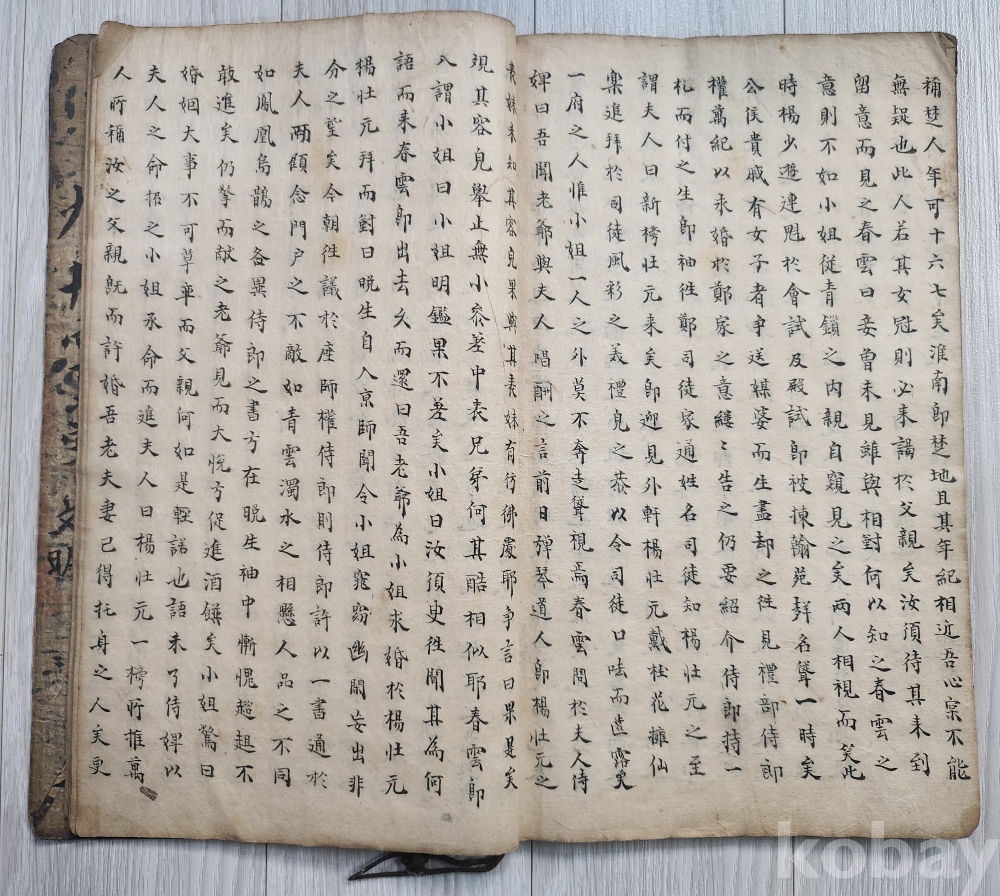 稱楚人年可十六七矣淮南卽楚地且其年紀相近吾心實不能
無疑也此人若其女冠則必來謁於父親矣汝須待其來到
留意而見之春雲曰妾曾未見雖與相對何以知之春雲之
意則不如小姐從青鎖之內親自窺見之矣兩人相視而笑此
時楊少遊連魁於會試及殿試卽被揀翰苑聲名聳一時矣
公侯貴戚有女子者爭送媒婆而生盡却之徃見禮部侍郞
權萬紀以求婚於鄭家之意縷〻告之仍要紹介侍郞持一
札而付之生卽袖徃鄭司徒家通姓名司徒知楊壯元之至
謂夫人曰新榜壯元來矣卽迎見外軒楊壯元戴桂花擁仙
樂進拜於司徒風彩之美禮皃之恭以令司徒口呿而齒露矣
一府之人惟小姐一人之外莫不奔走聳視焉春雲問於夫人侍
婢曰吾聞老爺與夫人唱酬之言前日彈琴道人卽楊壯元之
表妹未知其容皃果與其表妹有彷彿處耶爭言曰果是矣
視其容皃擧止無小參差中表兄弟何其酷相似耶春雲卽
入謂小姐曰小姐明鑑果不差矣小姐曰汝須更徃聞其爲何
語而來春雲卽出去久而還曰吾老爺爲小姐求婚於楊壯元
楊壯元拜而對曰晩生自入京師聞令小姐窈窕幽閑妄出非
分之望矣今朝徃議於座師權侍郞則侍郞許以一書通於
夫人而顧念門戶之不敵如青雲濁水之相懸人品之不同
如鳳凰烏鵲之各異侍郞之書方在晩生袖中慚愧趑趄不
敢進矣仍擎而獻之老爺見而大悅方促進酒饌矣小姐驚曰
婚姻大事不可草率而父親何如是輕諾也語未了侍婢以
夫人之命招之小姐承命而進夫人曰楊壯元一榜所推萬
人所稱汝之父親旣而許婚吾老夫妻已得托身之人矣更
kobay